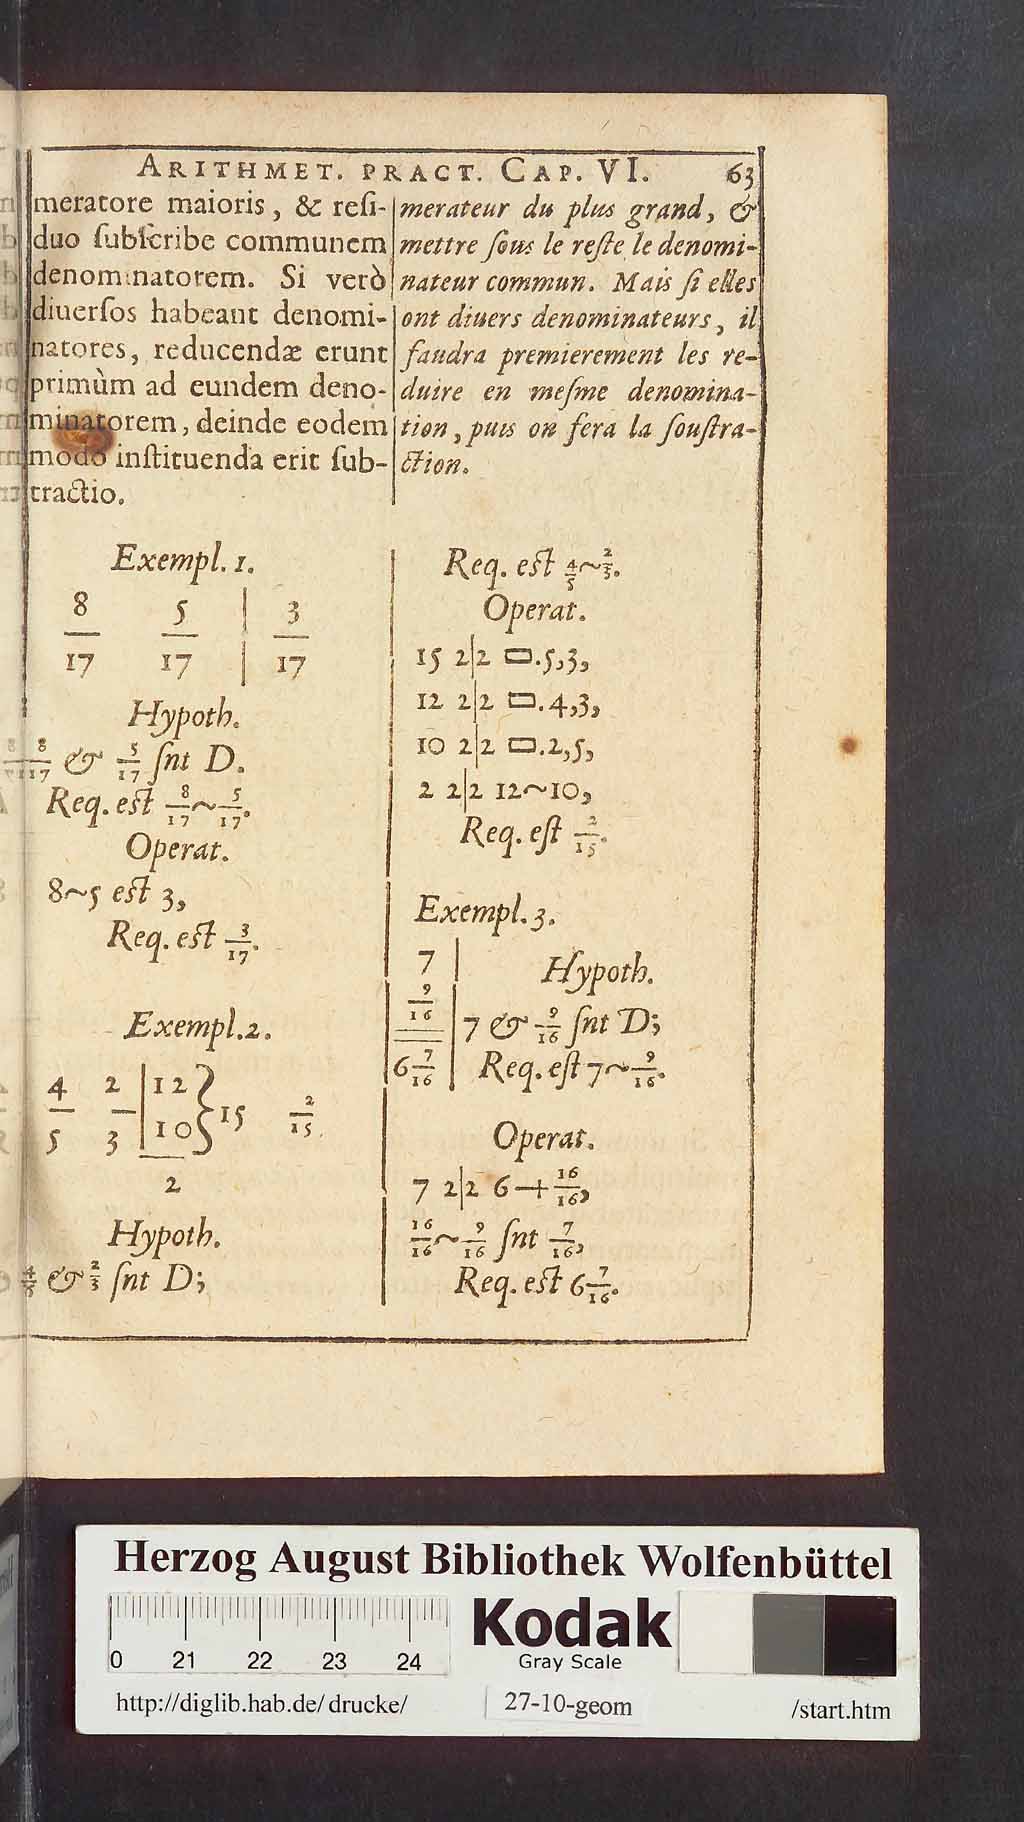 ARITHMET. PRACT. CAP. VI. 63
meratore maioris, & resi-
duo subscribe communem
denominatorem. Si verò
diuersos habeant denomi-
natores, reducendæ erunt
primùm ad eundem deno-
minatorem, deinde eodem
modo instituenda erit sub-
tractio.
merateur du plus grand, &
mettre sous le reste le denomi-
nateur commun. Mais si elles
ont diuers denominateurs, il
faudra premierement les re-
duire en mesme denomina-
tion, puis on fera la soustra-
ction.
Exempl. 1.
8/17 5/17 | 3/17
Hypoth.
8/17 & 5/17 snt D.
Req. est 8/17 ~ 5/17.
Operat.
8~5 est 3,
Req. est 3/17.
Exempl. 2.
4/5 2/3 | 12 10 } 15 2/15.
2
Hypoth.
4/5 & 2/3 snt D;
Req. est 4/5 ~ 2/3.
Operat.
15 2|2 ▭.5,3,
12 2|2 ▭.4,3,
10 2|2 ▭.2,5,
2 2|2 12~10,
Req. est 2/15.
Exempl. 3.
7
9/16
6 7/16
Hypoth.
7 & 9/16 snt D;
Req. est 7 ~ 9/16.
Operat.
7 2|2 6 + 16/16,
16/16 ~ 9/16 snt 7/16,
Req. est 6 7/16.
Herzog August Bibliothek Wolfenbüttel
0 21 22 23 24
Kodak
Gray Scale
http://diglib.hab.de/drucke/ 27-10-geom /start.htm